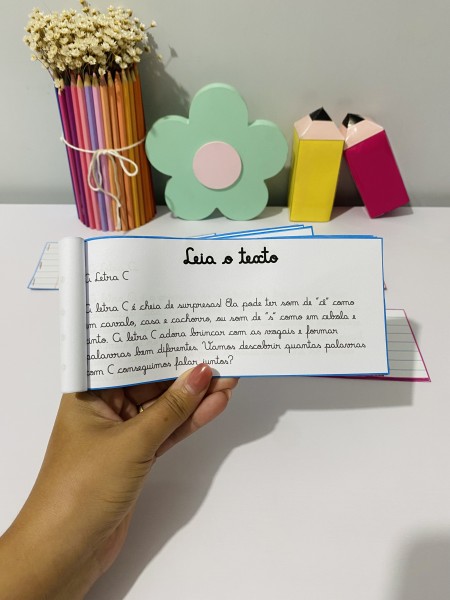 Leia o texto
A Letra C
A letra C é cheia de surpresas! Ela pode ter som de "cê" como
em cavalo, casa e cachorro, ou som de "s" como em cebola e
cinto. A letra C adora brincar com as vogais e formar
palavras bem diferentes. Vamos descobrir quantas palavras
com C conseguimos falar juntos?